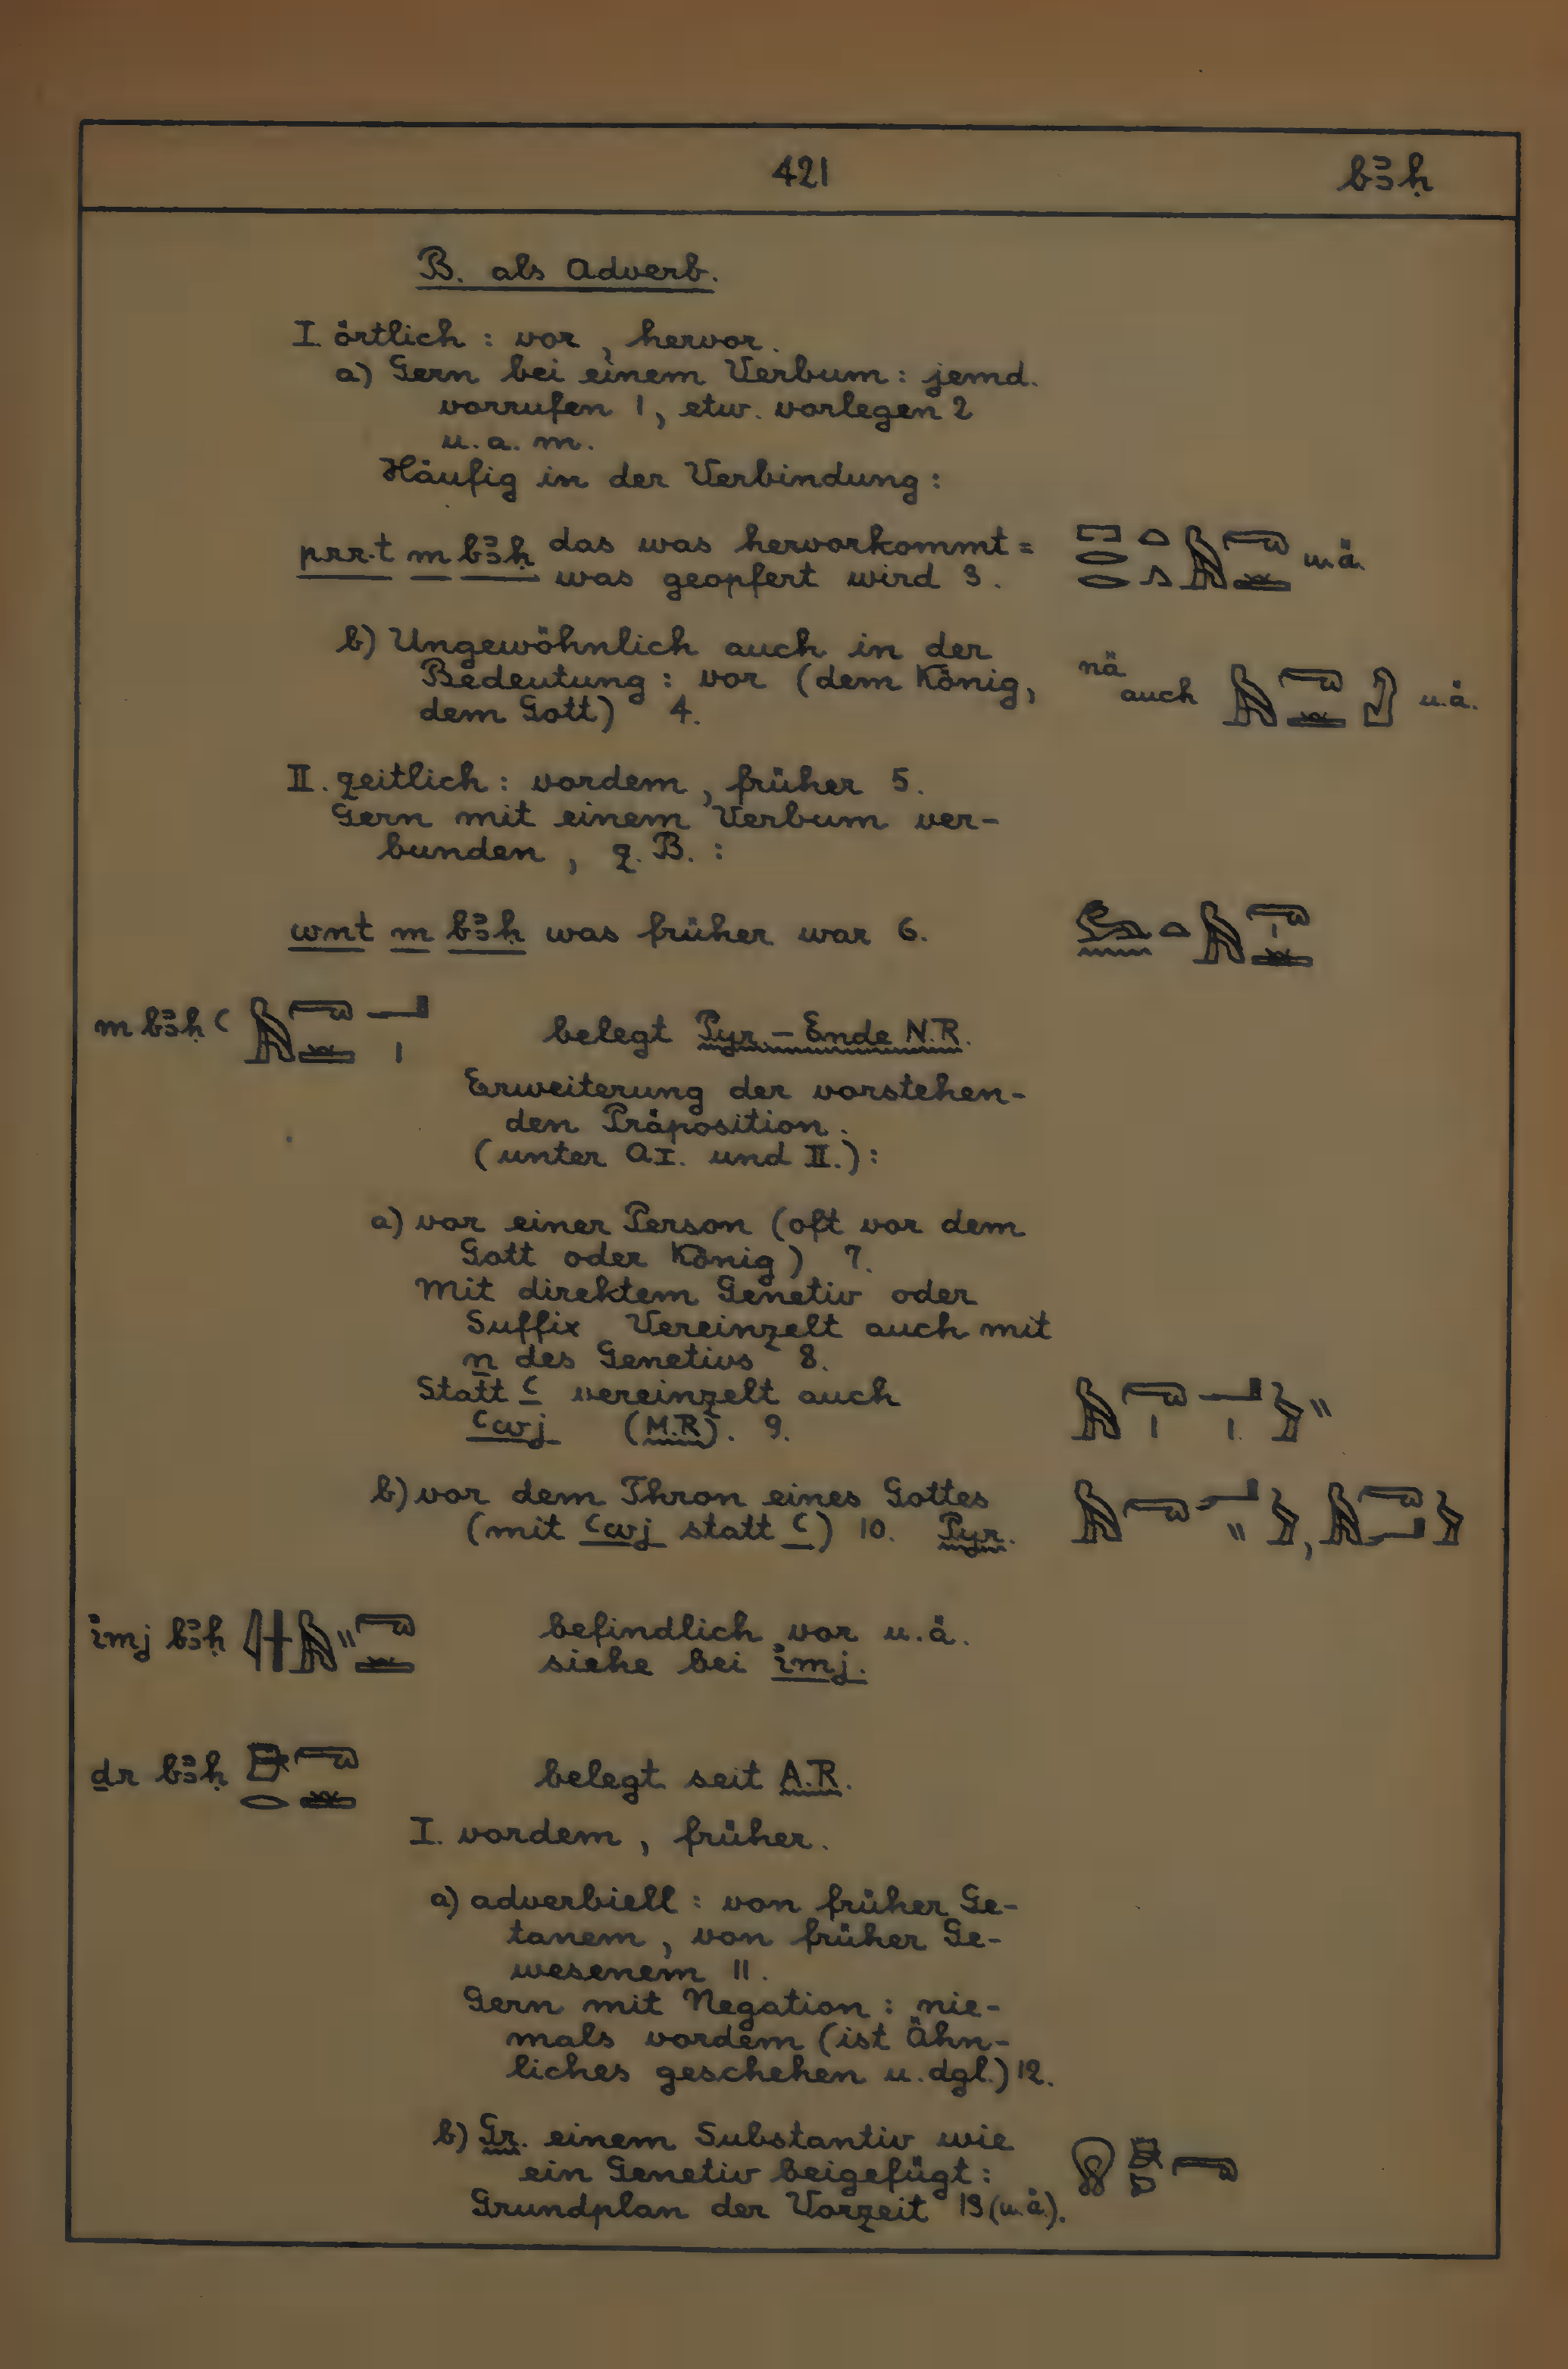 421 bꜣḥ
B. als Adverb.
I. örtlich : vor , hervor.
a) Gern bei einem Verbum : jemd.
vorrufen 1, etw. vorlegen 2
u. a. m.
Häufig in der Verbindung :
prr·t m bꜣḥ das was hervorkommt =
was geopfert wird 3. u.ä.
b) Ungewöhnlich auch in der
Bedeutung : vor (dem König,
dem Gott) 4.
nä
auch u.ä.
II. zeitlich : vordem , früher 5.
Gern mit einem Verbum ver-
bunden , z. B. :
wnt m bꜣḥ was früher war 6.
m bꜣḥ ꜥ belegt Pyr. - Ende N.R.
Erweiterung der vorstehen-
den Präposition.
(unter A I. und II.) :
a) vor einer Person (oft vor dem
Gott oder König) 7.
Mit direktem Genetiv oder
Suffix Vereinzelt auch mit
n des Genetivs 8.
Statt ꜥ vereinzelt auch
ꜥwj (M.R.). 9.
b) vor dem Thron eines Gottes
(mit ꜥwj statt ꜥ) 10. Pyr. ,
imj bꜣḥ befindlich vor u.ä.
siehe bei imj.
ḏr bꜣḥ belegt seit A.R.
I. vordem , früher.
a) adverbiell : von früher Ge-
tanem , von früher Ge-
wesenem 11.
Gern mit Negation : nie-
mals vordem (ist Ähn-
liches geschehen u. dgl.) 12.
b) Gr. einem Substantiv wie
ein Genetiv beigefügt :
Grundplan der Vorzeit 13 (u.ä.).